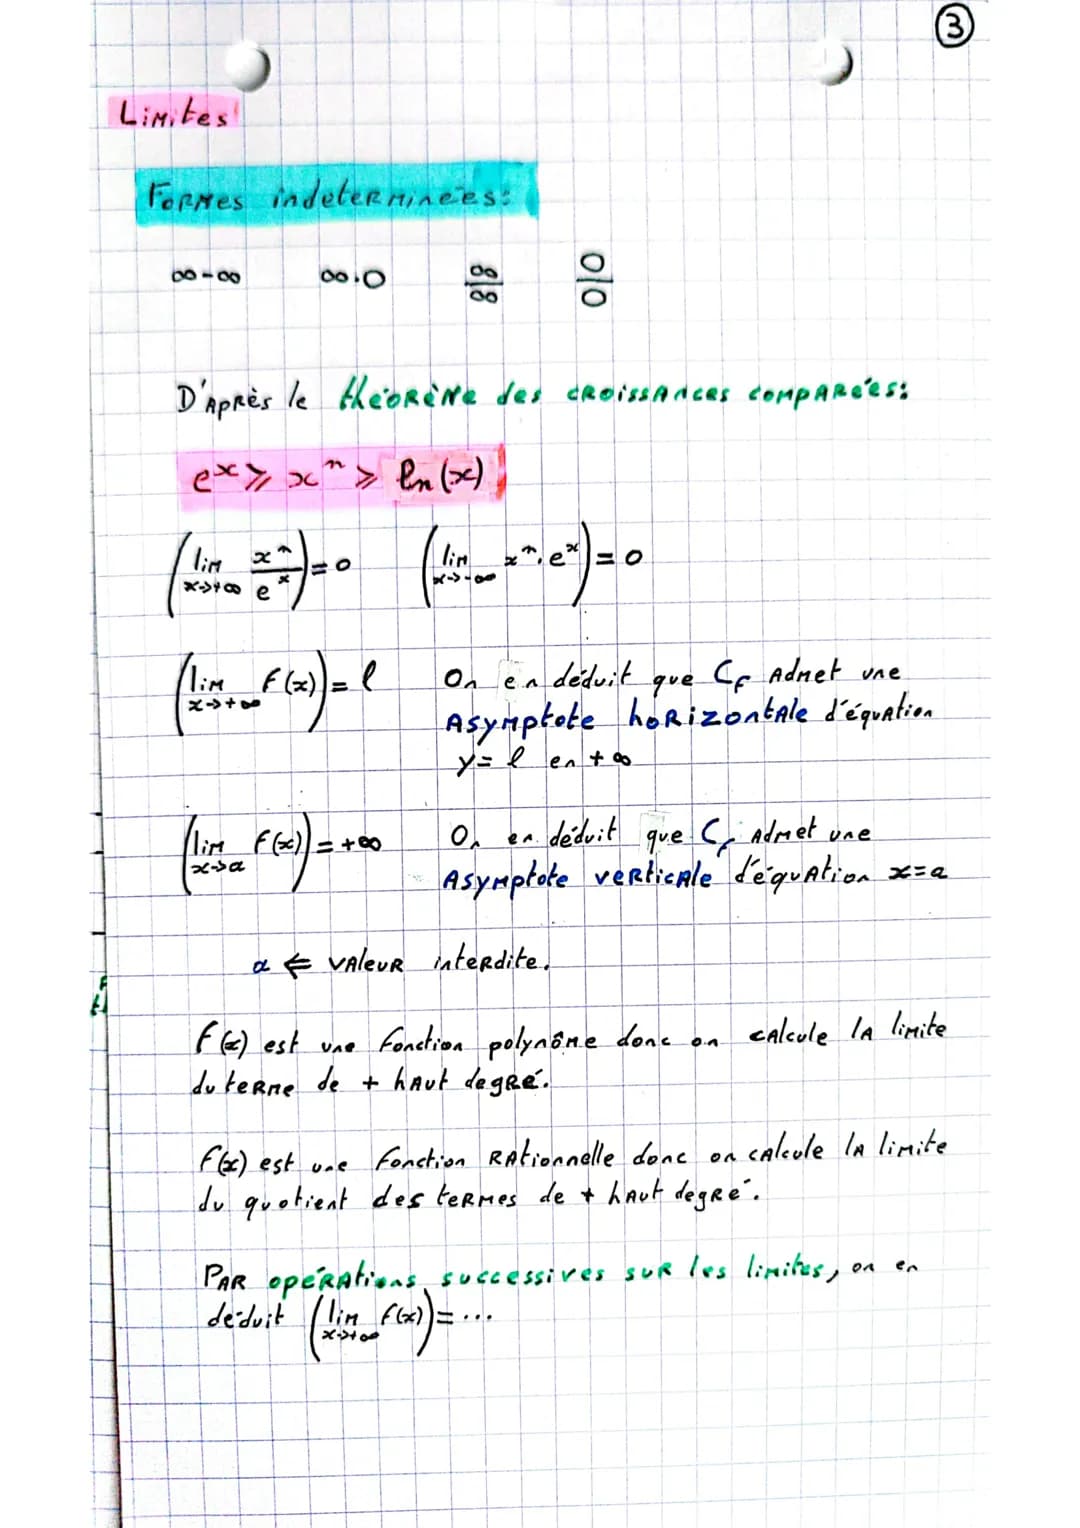 ③
Limites
Formes indeterminées:
∞-∞ ∞.0 ∞/∞ 0/0
D'Après le théorème des croissances comparées:
e^x ⩾ x^n ⩾ ln(x)
(lim x→+∞ x^n/e^x) = 0 (lim x→-∞ x^n.e^x) = 0
(lim x→+∞ f(x)) = l On en déduit que Cf Admet une
Asymptote horizontale d'équation
y = l en +∞
(lim x→a f(x)) = +∞ On en déduit que Cf Admet une
Asymptote verticale d'équation x=a
a ⇐ valeur interdite.
f(x) est une fonction polynôme donc on calcule la limite
du terme de + haut degré.
f(x) est une fonction rationnelle donc on calcule la limite
du quotient des termes de + haut degré.
Par opérations successives sur les limites, on en
déduit (lim x→+∞ f(x)) = ...